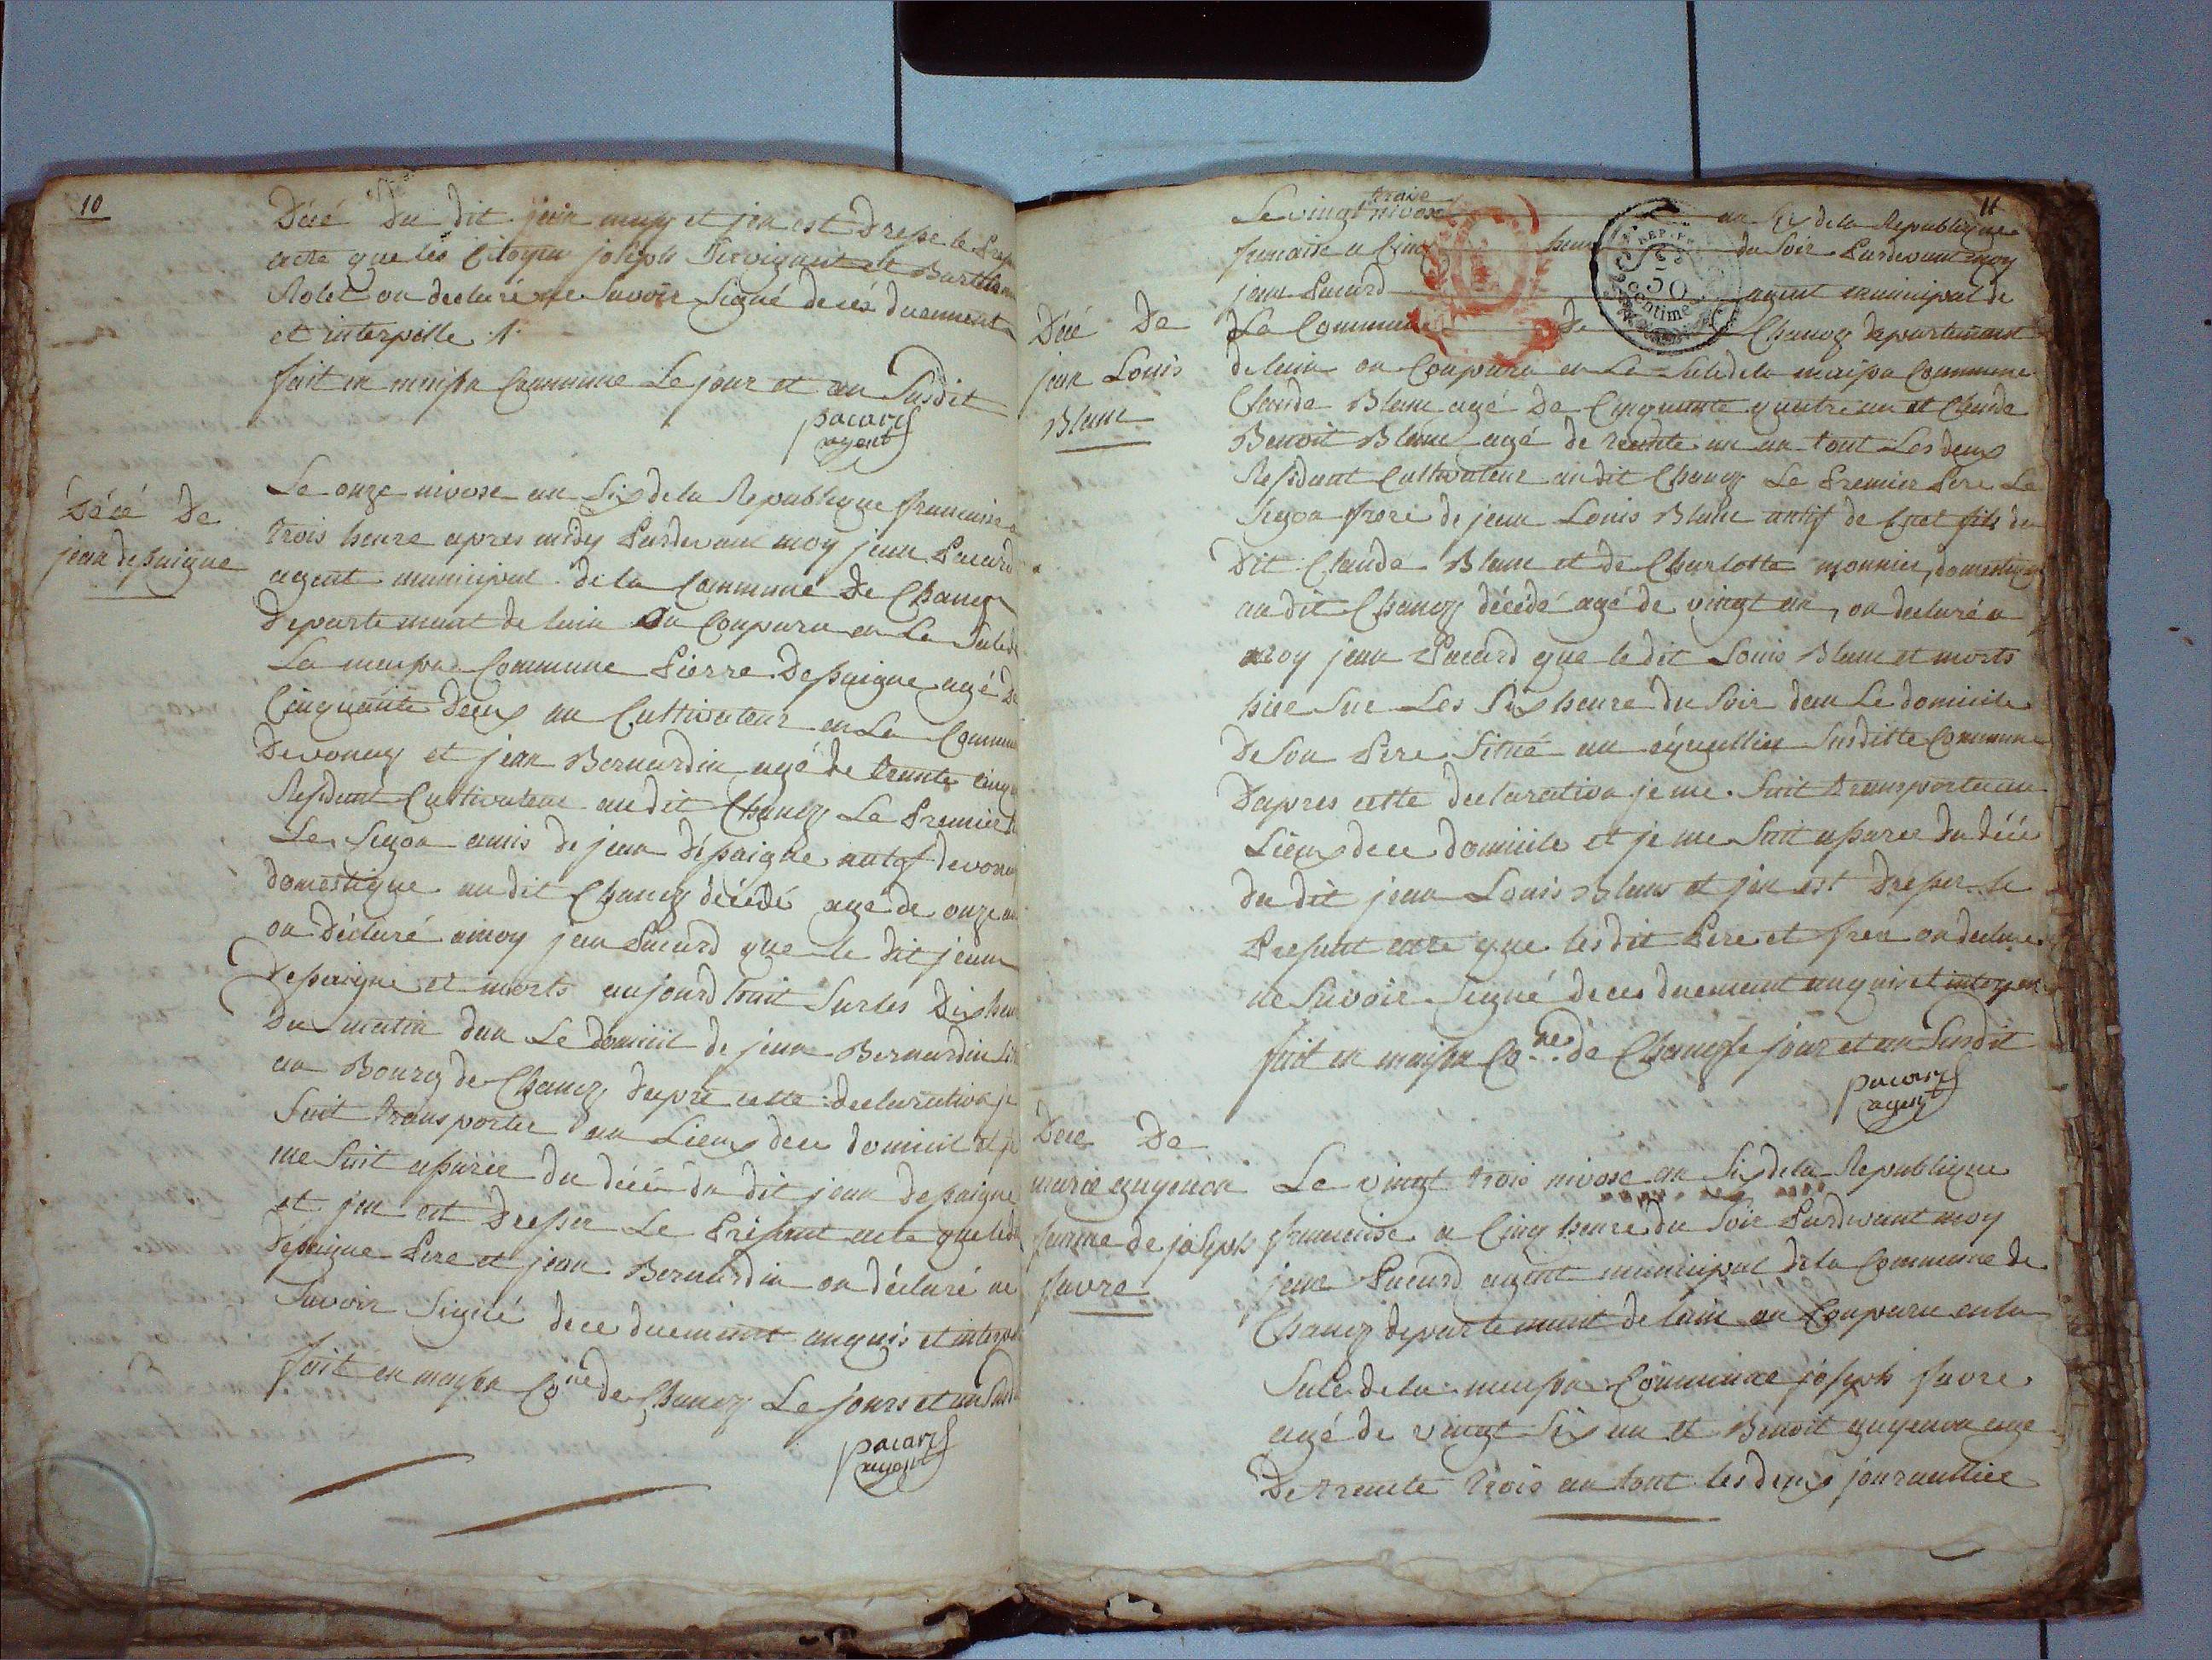 10
Décé du dit jean mary et jen est Dresse le
acte que les Citoyen joseph et
Rolet on declaré ne Savoir Signé deces duement
et interpelle ./.
fait en maison Commune Le jour et an Susdit
pacard
agent
Décé De
jean depaigne
Le onze nivose an Six dela Republique francaise a
trois heure apres midy Pardevant moy jean Pacard
agent municipal de la Commune De Chanoz
Departemant de lain on Conparu en La Sale de
La maison Commune Pierre Depaigne agé De
Cinquante Deux an Cultivateur en La Commune
De vonnas et jean Bernardin agé de trante cinq
Residant Cultivateur audit Chanoz Le Premier
Le Segon amis de jean dépaigne natif de vonnas
domestique audit Chanoz décédé agé de onze an
on Déclaré a moy jean Pacard que le dit jean
Depaigne et morts aujourdhuit Sur les Dix heure
Du matin dan Le domicil de jean Bernardin
au Bourg de Chanoz dapre cette declaration je
Suit transporter au Lieux dece domicil et je
me Suit asurée du décé du dit jean depaigne
et jen est Dresser Le Présant acte que led
Dépaigne Pere et jean Bernardin on déclaré ne
Savoir Signé dece duemant anquis et interpe
fait en maison Cone de Chanoz Le jours et an Susd
pacard
agent
11
trois
Le vingt nivose an Six dela Republique
francaise a Cinq heure du Soir Pardevant moy
jean Pacard agent municipal de
La Commune De Chanoz departemant
Décé De
jean Louis
Blanc
de lain on Conparu en La Sale dela maison Commune
Claude Blanc agé De Cinquante quatre an et Claude
Benoit Blanc agé de trente un an tout Les deux
Residant Cultivateur audit Chanoz Le Premier Pere Le
Segon frere de jean Louis Blanc natif de et fils du
Dit Claude Blanc et de Charlotte monnier, domestique
audit Chanoz décédé agé de vingt an, on declaré a
moy jean Pacard que le dit Louis Blanc et morts
hier Sur Les Six heure du Soir dan Le domicile
De Son Pere Situé au Susditte Commune
Dapres cette declaration je me Suit transporter au
Lieux dece domicile et je me Suit asurer du décé
du dit jean Louis Blanc et jen est Dresser Le
Presant acte que lesdit Pere et frere on declaré
ne Savoir Signé de ces duemant anquis et interpe
fait en maison Cone de Chanoz le jour et an Susdit
pacard
agent
Dece De
marie guyenon
famme de joseph
favre
Le vingt trois nivose an Six dela Republique
francaise a Cinq heure du Soir Pardevant moy
jean Pacard agent municipal dela Commune de
Chanoz departemant de lain on Conparu en la
Sale dela maison Commune joseph favre
agé de vingt Six an et Benoit guyenon age
De trante trois an tout les deux journallier